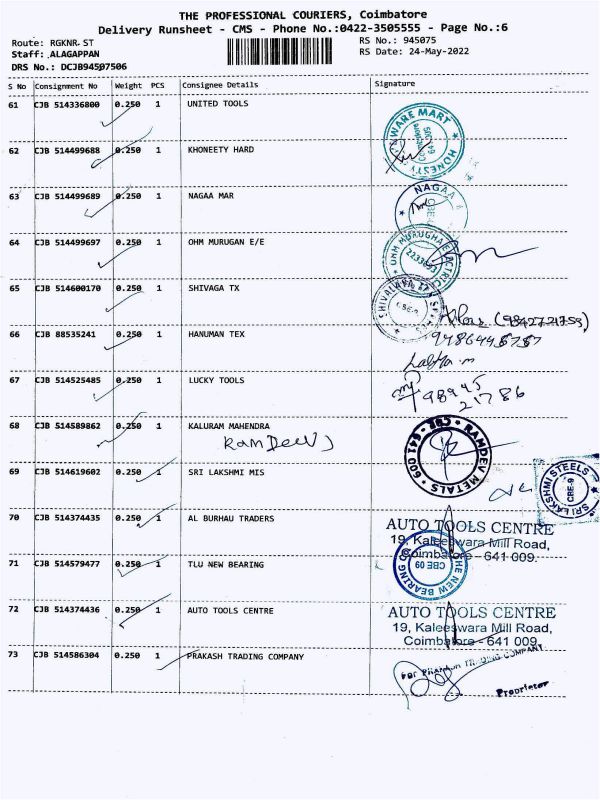 THE PROFESSIONAL COURIERS, Coimbatore
Delivery Runsheet - CMS - Phone No.:0422-3505555 - Page No.:6
Route: RGKNR-ST RS No.: 945075
Staff: ,ALAGAPPAN RS Date: 24-May-2022
DRS No.: DCJB94507506
S No Consignment No Weight PCS Consignee Details Signature
61 CJB 514336800 0.250 1 UNITED TOOLS
62 CJB 514499688 0.250 1 KHONEETY HARD
WARE MART HONESTY
63 CJB 514499689 0.250 1 NAGAA MAR
NAGAA
64 CJB 514499697 0.250 1 OHM MURUGAN E/E
OHM MURUGHA 2233693
65 CJB 514600170 0.250 1 SHIVAGA TX
(9842721759)
66 CJB 88535241 0.250 1 HANUMAN TEX
67 CJB 514525485 0.250 1 LUCKY TOOLS
98945
21786
68 CJB 514589862 0.250 1 KALURAM MAHENDRA
RAMDEV METALS CBE - 641 009
69 CJB 514619602 0.250 1 SRI LAKSHMI MIS
SRI LAKSHMI STEELS CBE-9
70 CJB 514374435 0.250 1 AL BURHAU TRADERS
AUTO TOOLS CENTRE
19, Kaleeswara Mill Road,
Coimbatore - 641 009.
71 CJB 514579477 0.250 1 TLU NEW BEARING
THE NEW BEARING CBE 09
72 CJB 514374436 0.250 1 AUTO TOOLS CENTRE
AUTO TOOLS CENTRE
19, Kaleeswara Mill Road,
Coimbatore - 641 009.
73 CJB 514586304 0.250 1 PRAKASH TRADING COMPANY
TRADING COMPANY
Proprietor